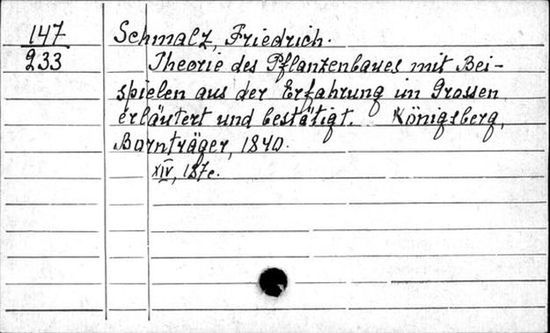 147 Schmalz, Friedrich.
233 Theorie des Pflanzenbaues mit Bei-
spielen aus der Erfahrung im Grossen
erläutert und bestätigt. Königsberg,
Bornträger, 1840.
XIV, 187c.